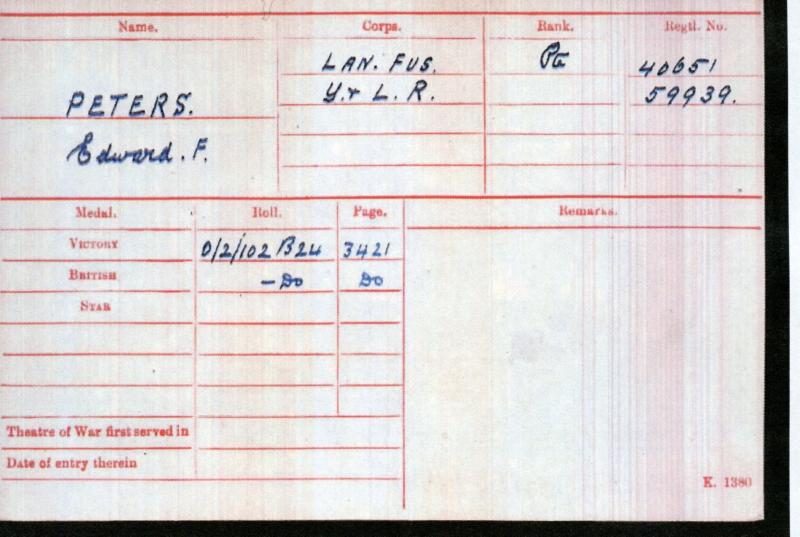 Name. Corps. Rank. Regtl. No.
LAN. FUS. Pte 40651
PETERS. Y. & L. R. 59939.
Edward. F.
Medal. Roll. Page. Remarks.
VICTORY 0/2/102 B24 3421
BRITISH - Do Do
STAR
Theatre of War first served in
Date of entry therein
K. 1380